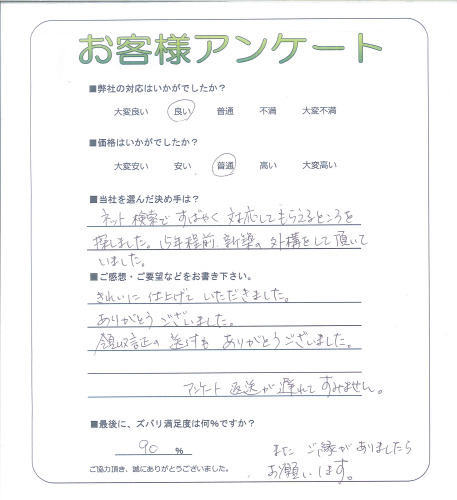 お客様アンケート
■弊社の対応はいかがでしたか？
大変良い 良い 普通 不満 大変不満
■価格はいかがでしたか？
大変安い 安い 普通 高い 大変高い
■当社を選んだ決め手は？
ネット検索ですばやく対応してもらえるところを
探しました。15年程前、新築の外構をして頂いて
いました。
■ご感想・ご要望などをお書き下さい。
きれいに仕上げていただきました。
ありがとうございました。
領収証の送付もありがとうございました。
アンケート返送が遅れてすみません。
■最後に、ズバリ満足度は何％ですか？
90 ％
またご縁がありましたら
お願いします。
ご協力頂き、誠にありがとうございました。